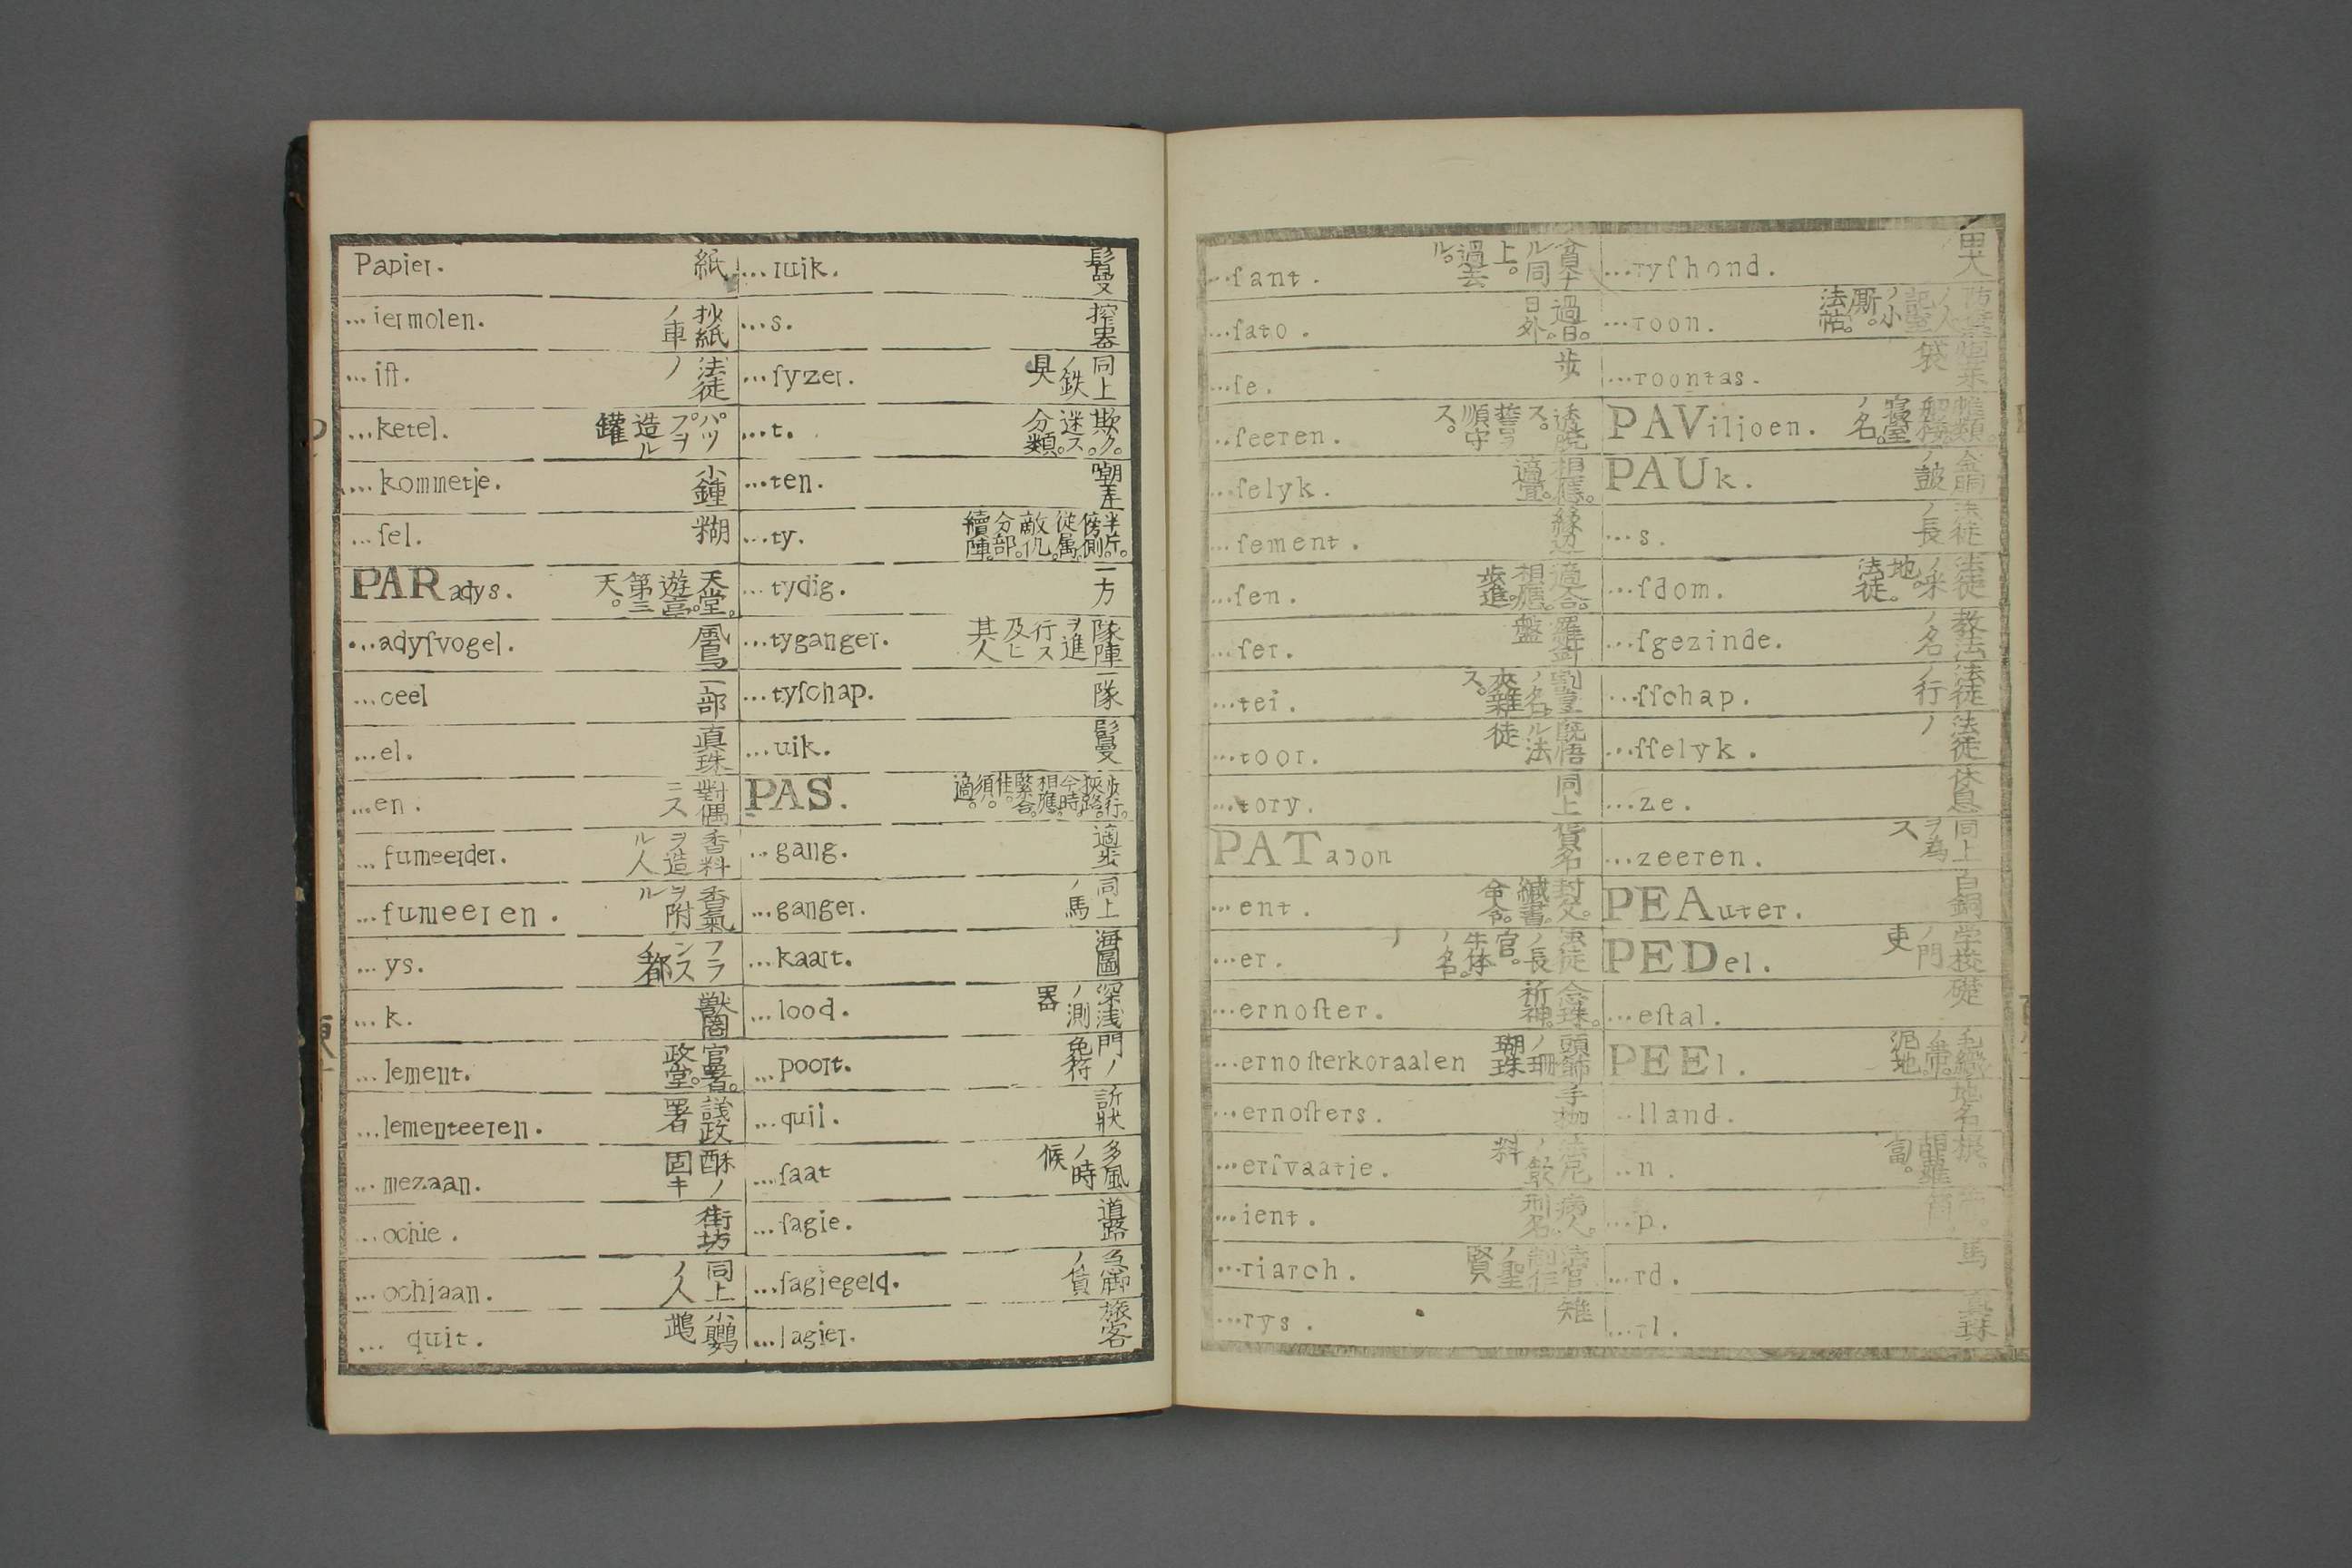 Papier. 紙
...iermolen. 抄紙ノ車
...iſt. 法徒ノ
...ketel. パツプヲ造ル罐
...kommetje. 小鍾
...ſel. 糊
PARadys. 天堂。遊喜。第三天。
...adyſvogel. 風鳥
...ceel 一部
...el. 真珠
...en. 對偶ニス
...fumeerder. 香料ヲ造ル人
...fumeeren. 香氣ヲ附ル
...ys. フランス都
...k. 獸圈
...lement. 官署。政堂。
...lementeeren. 議政署
...mezaan. 酥ノ固キ
...ochie. 街坊
...ochiaan. 同上ノ人
... quit. 小鸚鵡
...ruik. 鬘
...s. 搾器
...ſyzer. 同上ノ鉄具
...t. 欺ク。迷ス。分類。
...ten. 嘲弄
...ty. 半片。傍側。從属。敵仇。分部。續陣。
...tydig. 一方
...tyganger. 隊陣ヲ進行ス及ヒ其人
...tyſchap. 一隊
...uik. 鬘
PAS. 歩行。狹路。今時。相應。緊合。惟。須ク。適。
...gang. 適歩
...ganger. 同上ノ馬
...kaart. 海圖
...lood. 深浅ノ測器
...poort. 門ノ免符
...quil. 訴狀
...ſaat 多風ノ時候
...ſagie. 道路
...ſagiegeld. 急脚ノ賃
...ſagier. 旅客
...ſant.
...ſato. 過日。日外。
...ſe. 歩
...ſeeren.
...ſelyk. 相應。適宜。
...ſement. 縁辺
...ſen. 適合。相應。歩進。
...ſer. 羅針盤
...tei.
...toor. 既悟ル法徒
...tory. 同上
PATacon 貨名
...ent. 封文。緘書。命令。
...er. 法徒ノ長官。牛体ノ名。
...ernoſter. 念珠。祈神。
...ernoſterkoraalen 頭飾ノ珊瑚珠
...ernoſters. 手枷
...erſvaatje.
...ient. 病人。刑名。
...riarch.
...rys. 雉
...ryſhond. 田犬
...roon.
...roontas.
PAViljoen.
PAUk. 金胴ノ皷
...s. 法徒ノ長
...ſdom. 法徒ノ采地。法徒。
...ſgezinde. 教法ノ名
...ſſchap. 法徒ノ行
...ſſelyk. 法徒ノ
...ze. 休息
...zeeren. 同上ヲ為ス
PEAuter. 白銅
PEDel. 学校ノ門吏
...eſtal. 礎
PEEl.
...lland. 地名
...n.
...p.
...rd. 馬
...rl. 真珠